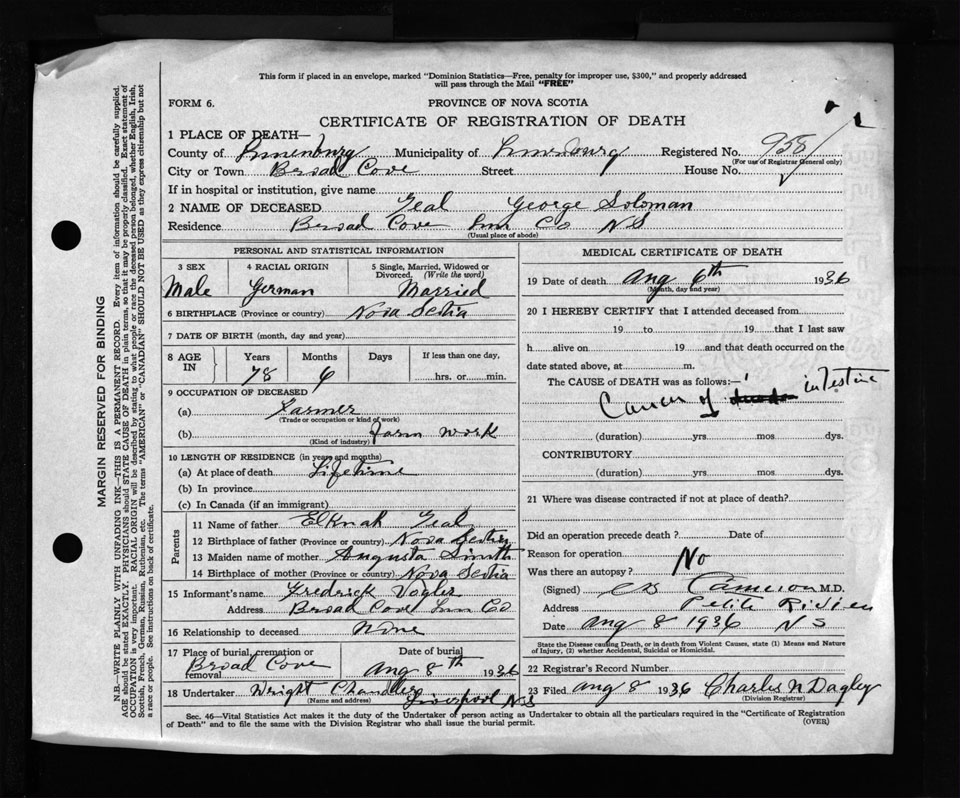 This form if placed in an envelope, marked "Dominion Statistics—Free, penalty for improper use, $300," and properly addressed
will pass through the Mail "FREE"
FORM 6.
PROVINCE OF NOVA SCOTIA
CERTIFICATE OF REGISTRATION OF DEATH
1 PLACE OF DEATH—
County of Lunenburg Municipality of Lunenburg Registered No. 958
(For use of Registrar General only)
City or Town Broad Cove Street House No.
If in hospital or institution, give name
2 NAME OF DECEASED Geal George Soloman
Residence Broad Cove Lun Co NS
(Usual place of abode)
PERSONAL AND STATISTICAL INFORMATION
3 SEX 4 RACIAL ORIGIN 5 Single, Married, Widowed or
Divorced. (Write the word)
Male German Married
6 BIRTHPLACE (Province or country) Nova Scotia
7 DATE OF BIRTH (month, day and year)
8 AGE IN Years Months Days If less than one day,
78 6 hrs. or min.
9 OCCUPATION OF DECEASED
(a) Farmer
(Trade or occupation or kind of work)
(b) farm work
(Kind of industry)
10 LENGTH OF RESIDENCE (in years and months)
(a) At place of death Lifetime
(b) In province
(c) In Canada (if an immigrant)
Parents
11 Name of father Elknah Geal
12 Birthplace of father (Province or country) Nova Scotia
13 Maiden name of mother Augusta Smith
14 Birthplace of mother (Province or country) Nova Scotia
15 Informant's name Fredrick Vogler
Address Broad Cove Lun Co
16 Relationship to deceased None
17 Place of burial, cremation or removal Date of burial
Broad Cove Aug 8th 1936
18 Undertaker Wright Chandler
(Name and address) Liverpool N.S
MEDICAL CERTIFICATE OF DEATH
19 Date of death Aug 6th 1936
(Month, day and year)
20 I HEREBY CERTIFY that I attended deceased from
19 to 19 that I last saw
h alive on 19 and that death occurred on the
date stated above, at m.
The CAUSE of DEATH was as follows:—
Cancer of intestine
(duration) yrs. mos. dys.
CONTRIBUTORY
(duration) yrs. mos. dys.
21 Where was disease contracted if not at place of death?
Did an operation precede death? Date of
Reason for operation
Was there an autopsy? No
(Signed) Cameron M.D.
Address Petite Riviere
Date Aug 8 1936 NS
State the Disease Causing Death, or in death from Violent Causes, state (1) Means and Nature
of Injury, (2) whether Accidental, Suicidal or Homicidal.
22 Registrar's Record Number
23 Filed Aug 8 1936 Charles N Dagley
(Division Registrar)
Sec. 46—Vital Statistics Act makes it the duty of the Undertaker or person acting as Undertaker to obtain all the particulars required in the "Certificate of Registration
of Death" and to file the same with the Division Registrar who shall issue the burial permit. (OVER)
MARGIN RESERVED FOR BINDING
N.B.—WRITE PLAINLY WITH UNFADING INK—THIS IS A PERMANENT RECORD. Every item of information should be carefully supplied.
AGE should be stated EXACTLY. PHYSICIANS should STATE CAUSE OF DEATH in plain terms, so that it may be properly classified. Exact statement of
OCCUPATION is very important. RACIAL ORIGIN will be described by stating to what people or race the deceased person belonged, whether English, Irish,
Scottish, French, German, Russian, Ruthenian, etc. The terms "AMERICAN" or "CANADIAN" SHOULD NOT BE USED as they express citizenship but not
a race or people. See instructions on back of certificate.